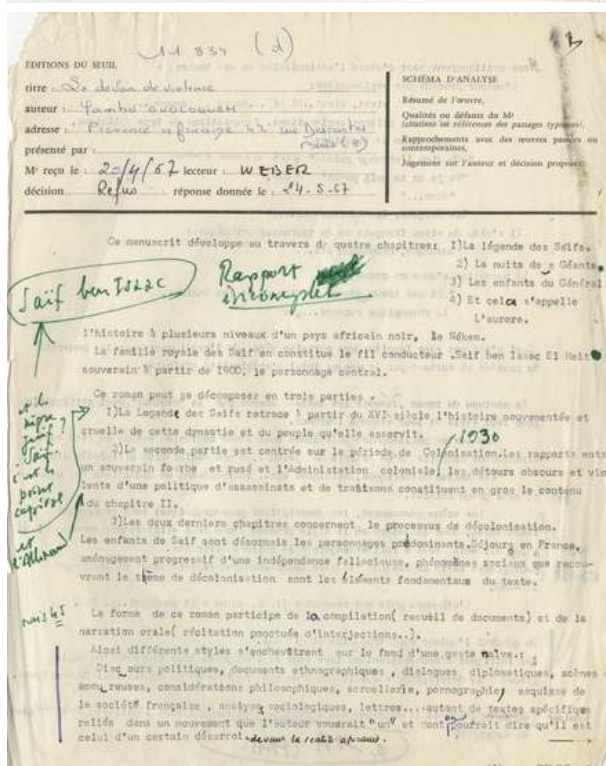 11 834 (d)
13
ÉDITIONS DU SEUIL
titre : Le devoir de violence
auteur : Yambo OUOLOGUEM
adresse : Présence africaine 42 rue Descartes
Paris (5)
présenté par :
Mˢ reçu le : 20/4/67 lecteur : WEBER
décision Refus réponse donnée le : 24.5.67
SCHÉMA D'ANALYSE
Résumé de l'œuvre,
Qualités ou défauts du Mˢ
(citations ou références des passages typiques),
Rapprochements avec des œuvres passées ou
contemporaines,
Jugement sur l'auteur et décision proposée
Ce manuscrit développe au travers de quatre chapitres: 1)La légende des Saïfs.
2) La nuits de s Géants.
3) Les enfants du Général
4) Et cela s'appelle
L'aurore.
Saïf ben Isaac
Rapport
incomplet
l'histoire à plusieurs niveaux d'un pays africain noir, le Nékem.
La famille royale des Saïf en constitue le fil conducteur .Saïf ben Isaac El Heit
souverain à partir de 1900, le personnage central.
Ce roman peut se décomposer en trois parties .
1)La Legende des Saifs retrace à partir du XVI siècle l'histoire mouvementée et
cruelle de cette dynastie et du peuple qu'elle asservit.
1930
2)La seconde partie est centrée sur la période de Colonisation.les rapports entre
un souverain fourbe et rusé et l'Administation coloniale, les détours obscurs et vio
lents d'une politique d'assassinats et de trahisons constituent en gros le contenu
du chapitre II.
et le
nègre
juif ?
Saïf
c'est le
point
capital
et
l'Allemand
3)Les deux derniers chapitres concernent le processus de décolonisation.
Les enfants de Saif sont désormais les personnages prédominants.Séjours en France,
aménagement progressif d'une indépendance fallacieuse, phénomènes sociaux que recou-
vrent le thème de décolonisation sont les éléments fondamentaux du texte.
mais 45
La forme de ce roman participe de la compilation( recueil de documents) et de la
narration orale( récitation ponctuée d'interjections..).
Ainsi différents styles s'enchevêtrent sur le fond d'une geste naïve.:
Disc ours politiques, documents ethnographiques , dialogues diplomatiques, scènes
amou reuses, considérations philosophiques, sorcellerie, pornographie, esquisse de
la société française , analyse sociologiques, lettres...autant de textes spécifiques
reliés dans un mouvement que l'auteur voudrait "un" et dont on pourrait dire qu'il est
celui d'un certain désarroi devant la réalité africaine.